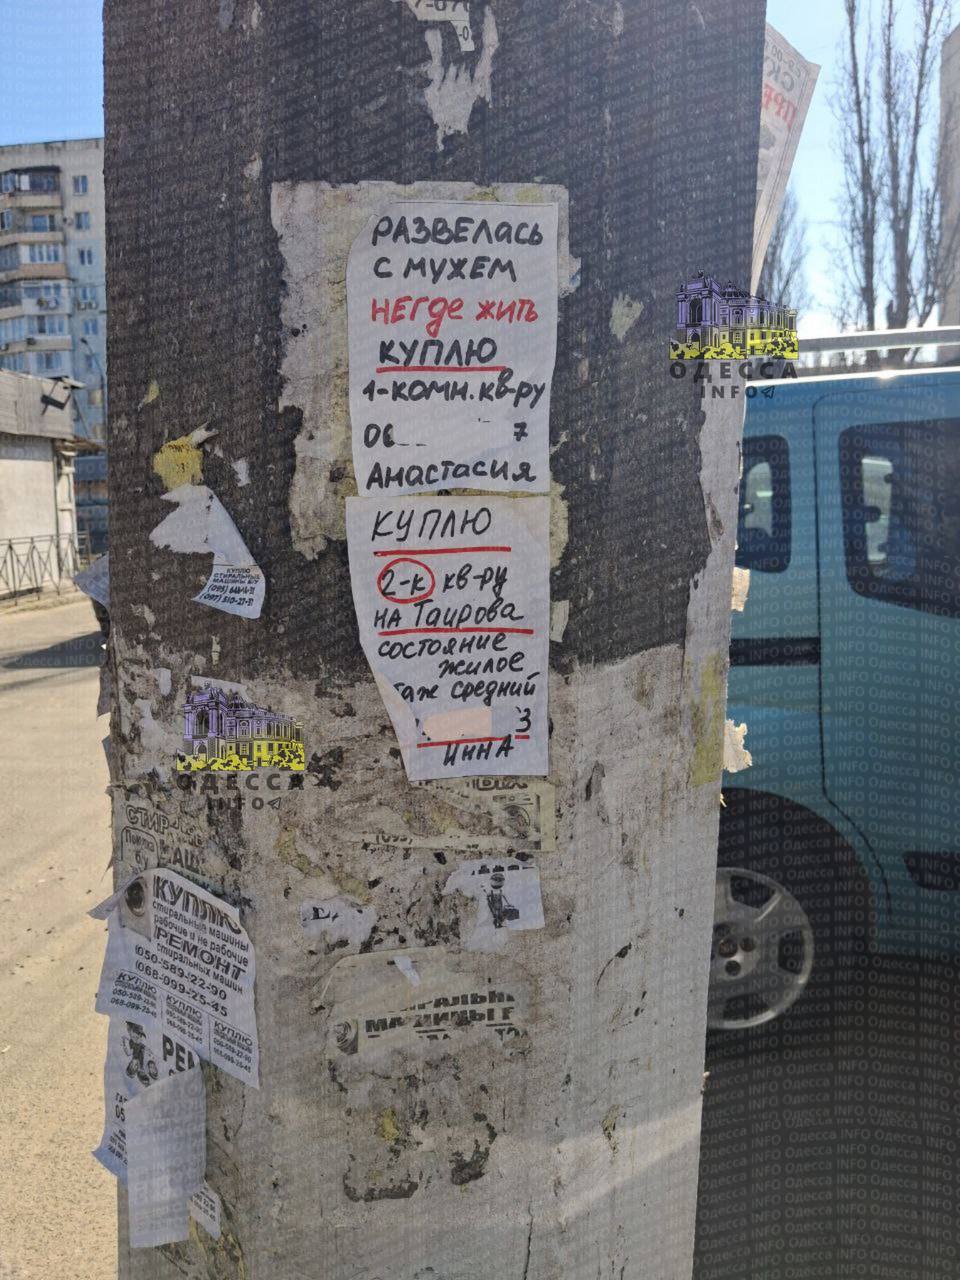 РАЗВЕЛАСЬ
С МУЖЕМ
НЕГДЕ ЖИТЬ
КУПЛЮ
1-КОМН. КВ-РУ
7
АНАСТАСИЯ
КУПЛЮ
2-К КВ-РУ
НА ТАИРОВА
СОСТОЯНИЕ
ЖИЛОЕ
ТАЖ СРЕДНИЙ
3
ИННА
ОДЕССА
INFO
КУПЛЮ
СТИРАЛЬНЫЕ
МАШИНЫ Б/У
ОДЕССА
INFO
КУПЛЮ
стиральные машины
рабочие и не рабочие
РЕМОНТ
стиральных машин
(050-589-22-90
(068-099-25-45
КУПЛЮ
КУПЛЮ
КУПЛЮ
РЕМ
РАЛЬН
МАШИНЫ